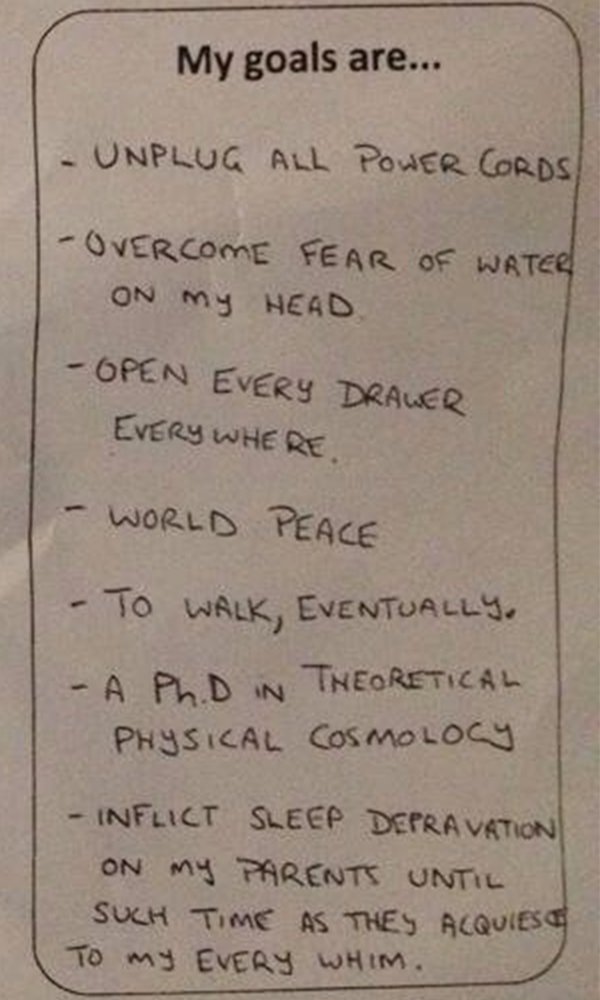 My goals are...
- UNPLUG ALL POWER CORDS
- OVERCOME FEAR OF WATER
ON MY HEAD.
- OPEN EVERY DRAWER
EVERYWHERE.
- WORLD PEACE
- TO WALK, EVENTUALLY.
- A Ph.D IN THEORETICAL
PHYSICAL COSMOLOGY
- INFLICT SLEEP DEPRAVATION
ON MY PARENTS UNTIL
SUCH TIME AS THEY ACQUIESCE
TO MY EVERY WHIM.